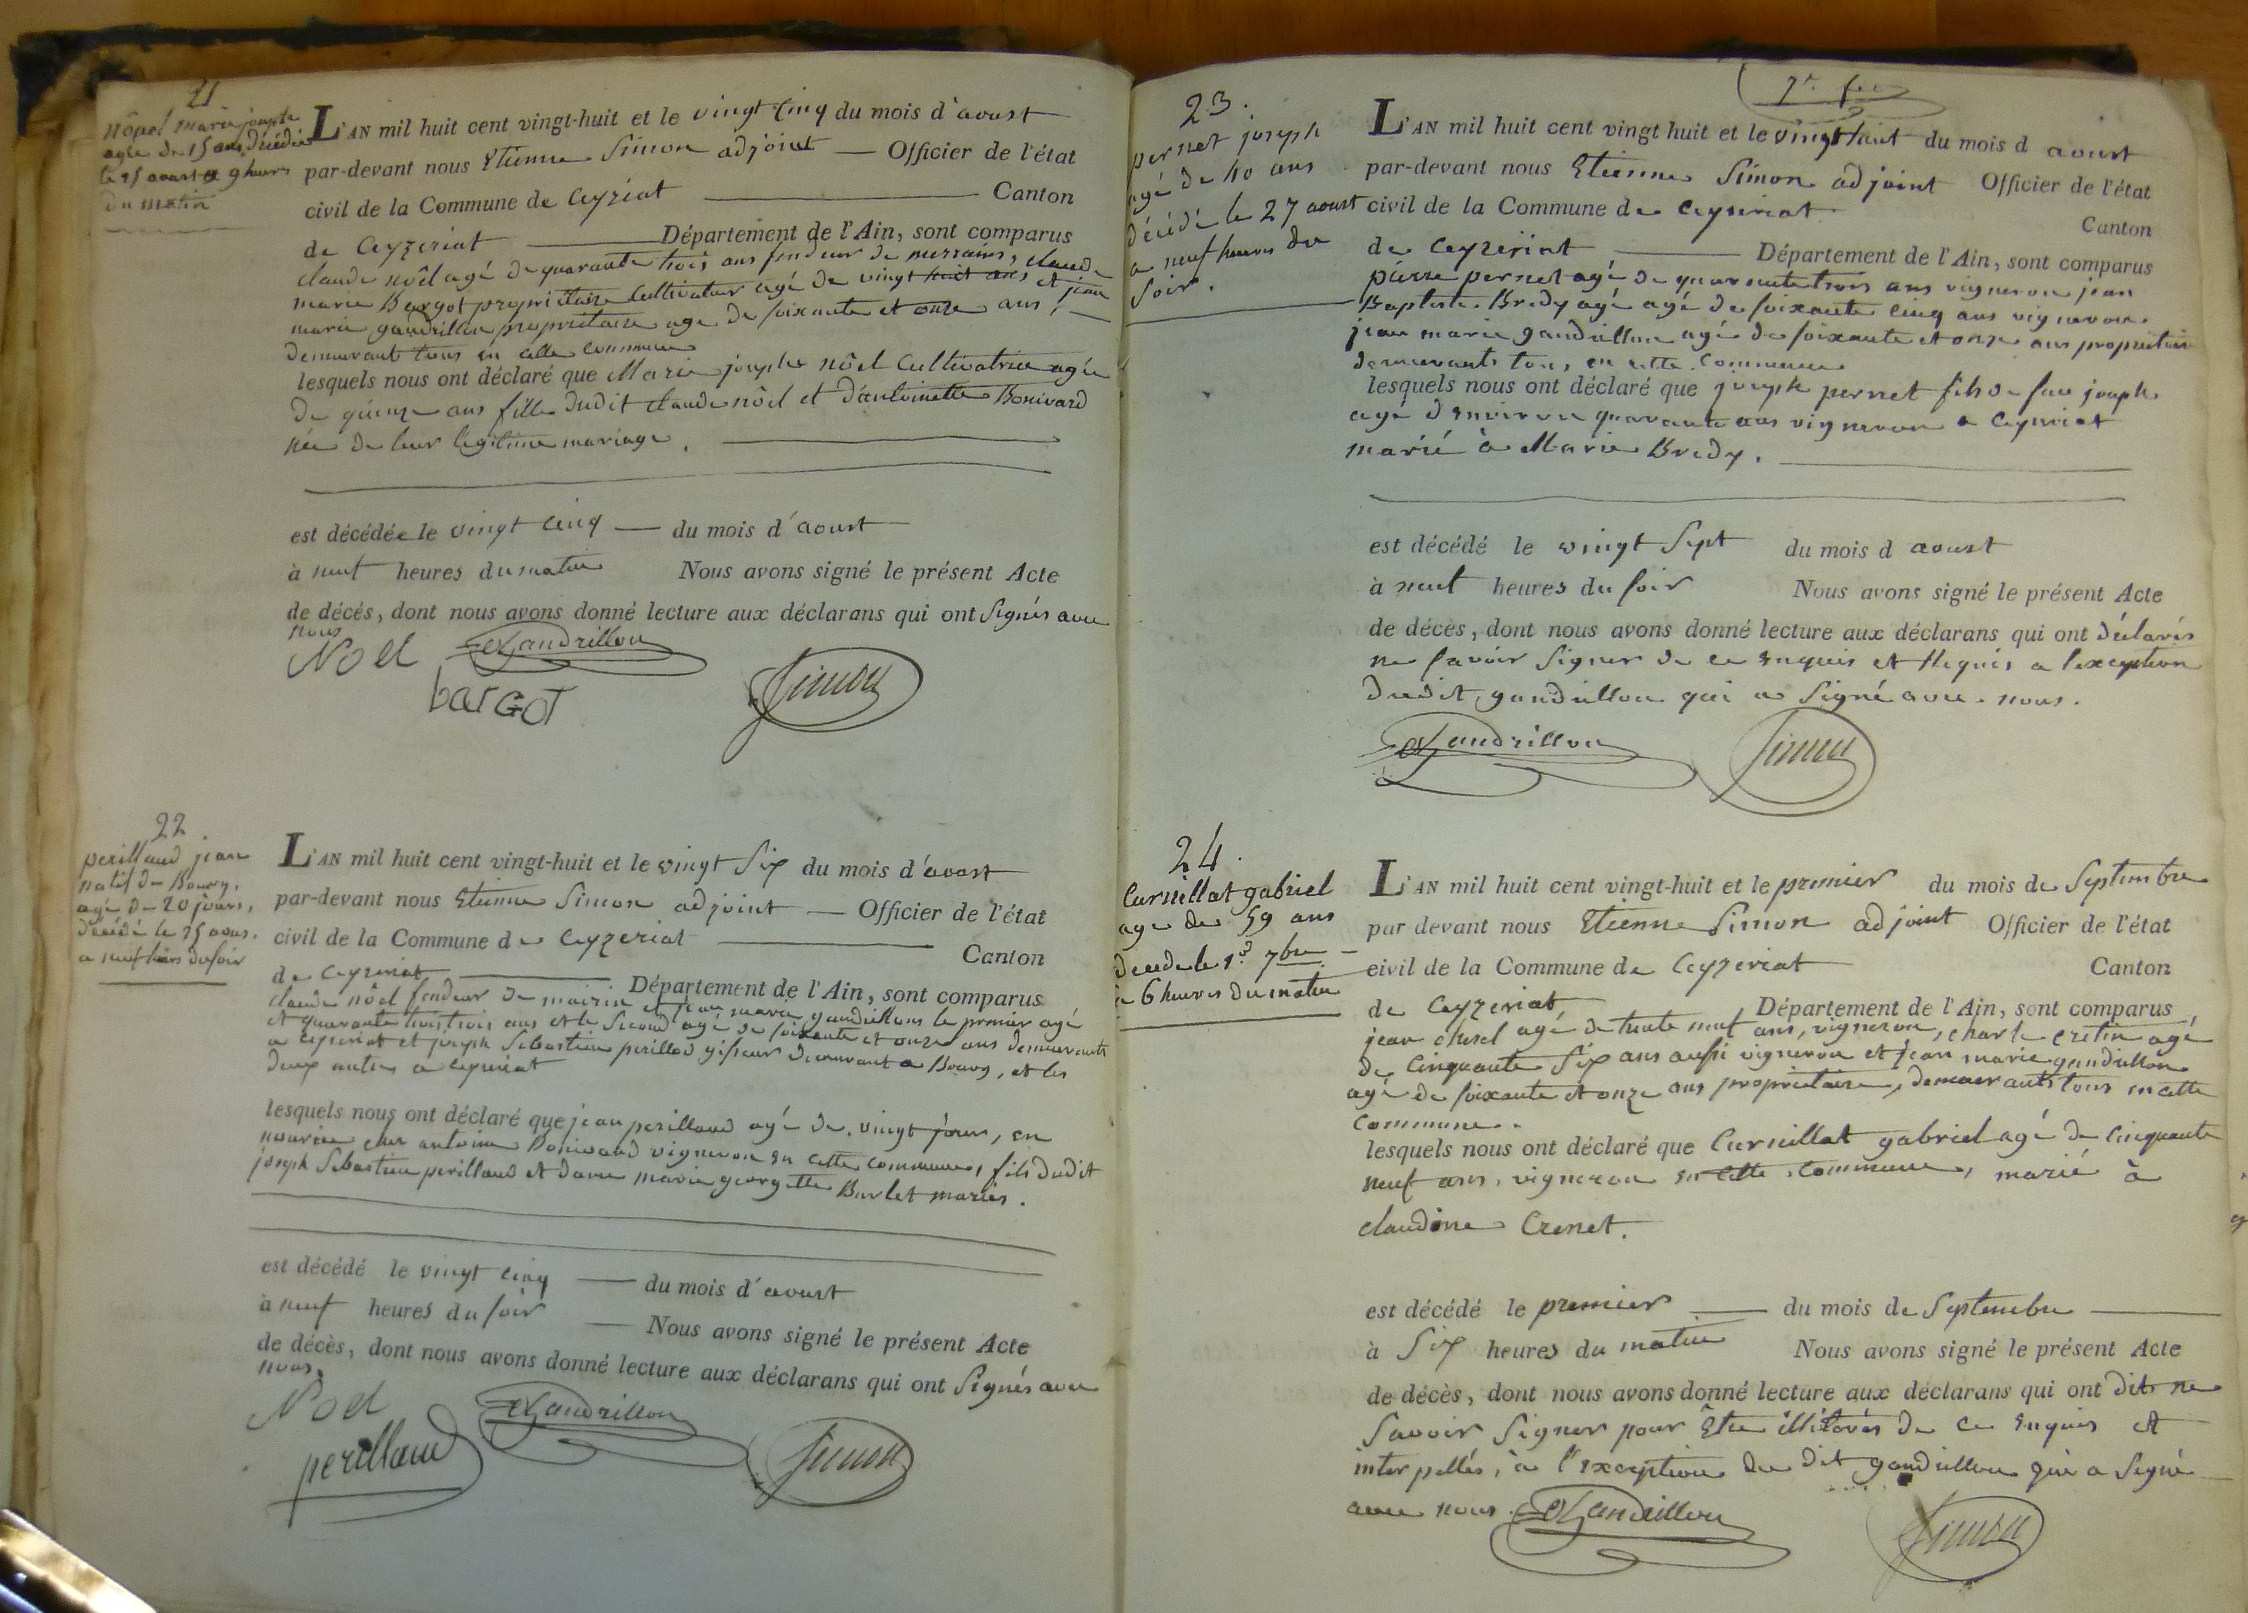 21
nôel marie josephte
agée de 15 ans décédée
le 25 aoust a 9 heures
du matin
L'AN mil huit cent vingt-huit et le vingt cinq du mois d'aoust
par-devant nous Etienne Simon adjoint — Officier de l'état
civil de la Commune de Ceyziat Canton
de Ceyzeriat Département de l'Ain, sont comparus
claude nôel agé de quarante trois ans fendeur de merrains, claude
marie Bargot propriétaire Cultivateur agé de vingt huit ans et jean
marie gandrillon propriétaire agé de soixante et onze ans,
demeurant tous en cette commune
lesquels nous ont déclaré que Marie josephte nôel Cultivatrice agée
de quinze ans fille dudit claude nôel et d'antoinette Bonivard
née de leur légitime mariage.
est décédée le vingt cinq — du mois d'aoust
à neuf heures du matin Nous avons signé le présent Acte
de décès, dont nous avons donné lecture aux déclarans qui ont Signés avec
nous
Noël Gandrillon
barGot Simon
22
perillaud jean
natif de Bourg,
agé de 20 jours,
décédé le 25 aous.
a neuf heures du soir
L'AN mil huit cent vingt-huit et le vingt Six du mois d'aoust
par-devant nous Etienne Simon adjoint — Officier de l'état
civil de la Commune de Ceyzeriat Canton
de Ceyzeriat Département de l'Ain, sont comparus
claude nôel fendeur de mairin et jean marie gandrillons le premier agé
et quarante trois trois ans et le Second agé de soixante et onze ans demeurants
a ceyzeriat et joseph Sebastien perillod gipseur demeurant a Bourg, et les
deux autres a ceyzeriat
lesquels nous ont déclaré que jean perillaud agé de vingt jours, en
nourice chez antoine Bonivard vigneron en cette commune, fils dudit
joseph Sebastien perillaud et dame marie georgette Burlet mariés.
est décédé le vingt cinq — du mois d'aoust
à neuf heures du soir — Nous avons signé le présent Acte
de décès, dont nous avons donné lecture aux déclarans qui ont Signés avec
nous.
Noël Gandrillon
perillaud Simon
23.
pernet joseph
agé de 40 ans
décédé le 27 aoust
a neuf heures du
soir.
L'AN mil huit cent vingt huit et le vingt huit du mois d aoust
par-devant nous Etienne Simon adjoint Officier de l'état
civil de la Commune de ceyzeriat Canton
de ceyzeriat Département de l'Ain, sont comparus
pierre pernet agé de quarante trois ans vigneron jean
Baptiste Bredy agé agé de soixante cinq ans vigneron
jean marie gandrillon agé de soixante et onze ans propriétaire
demeurants tous en cette commune
lesquels nous ont déclaré que joseph pernet fils de feu joseph
agé d'environ quarante ans vigneron a ceyzeriat
marié à Marie Bredy.
est décédé le vingt Sept du mois d aoust
à neuf heures du soir Nous avons signé le présent Acte
de décès, dont nous avons donné lecture aux déclarans qui ont déclarés
ne savoir Signer de ce enquis et Requis a l'exception
dudit gandrillon qui a Signé avec nous.
Gandrillon Simon
24.
Curnillat gabriel
agé de 59 ans
décédé le 1er 7bre
à 6 heures du matin
L'AN mil huit cent vingt-huit et le premier du mois de Septembre
par devant nous Etienne Simon adjoint Officier de l'état
civil de la Commune de Ceyzeriat Canton
de Ceyzeriat Département de l'Ain, sont comparus
jean chisel agé de trente neuf ans, vigneron, charle cretin agé
de Cinquante Six ans aussi vigneron et jean marie gandrillon
agé de soixante et onze ans propriétaire, demeurants tous en cette
commune.
lesquels nous ont déclaré que Curnillat gabriel agé de Cinquante
neuf ans, vigneron en cette commune, marié à
claudine Crenet.
est décédé le premier — du mois de Septembre
à Six heures du matin Nous avons signé le présent Acte
de décès, dont nous avons donné lecture aux déclarans qui ont dit ne
Savoir Signer pour Etre illiterés de ce enquis et
interpellés, à l'exception du dit gandrillon qui a Signé
avec nous. Gandrillon Simon